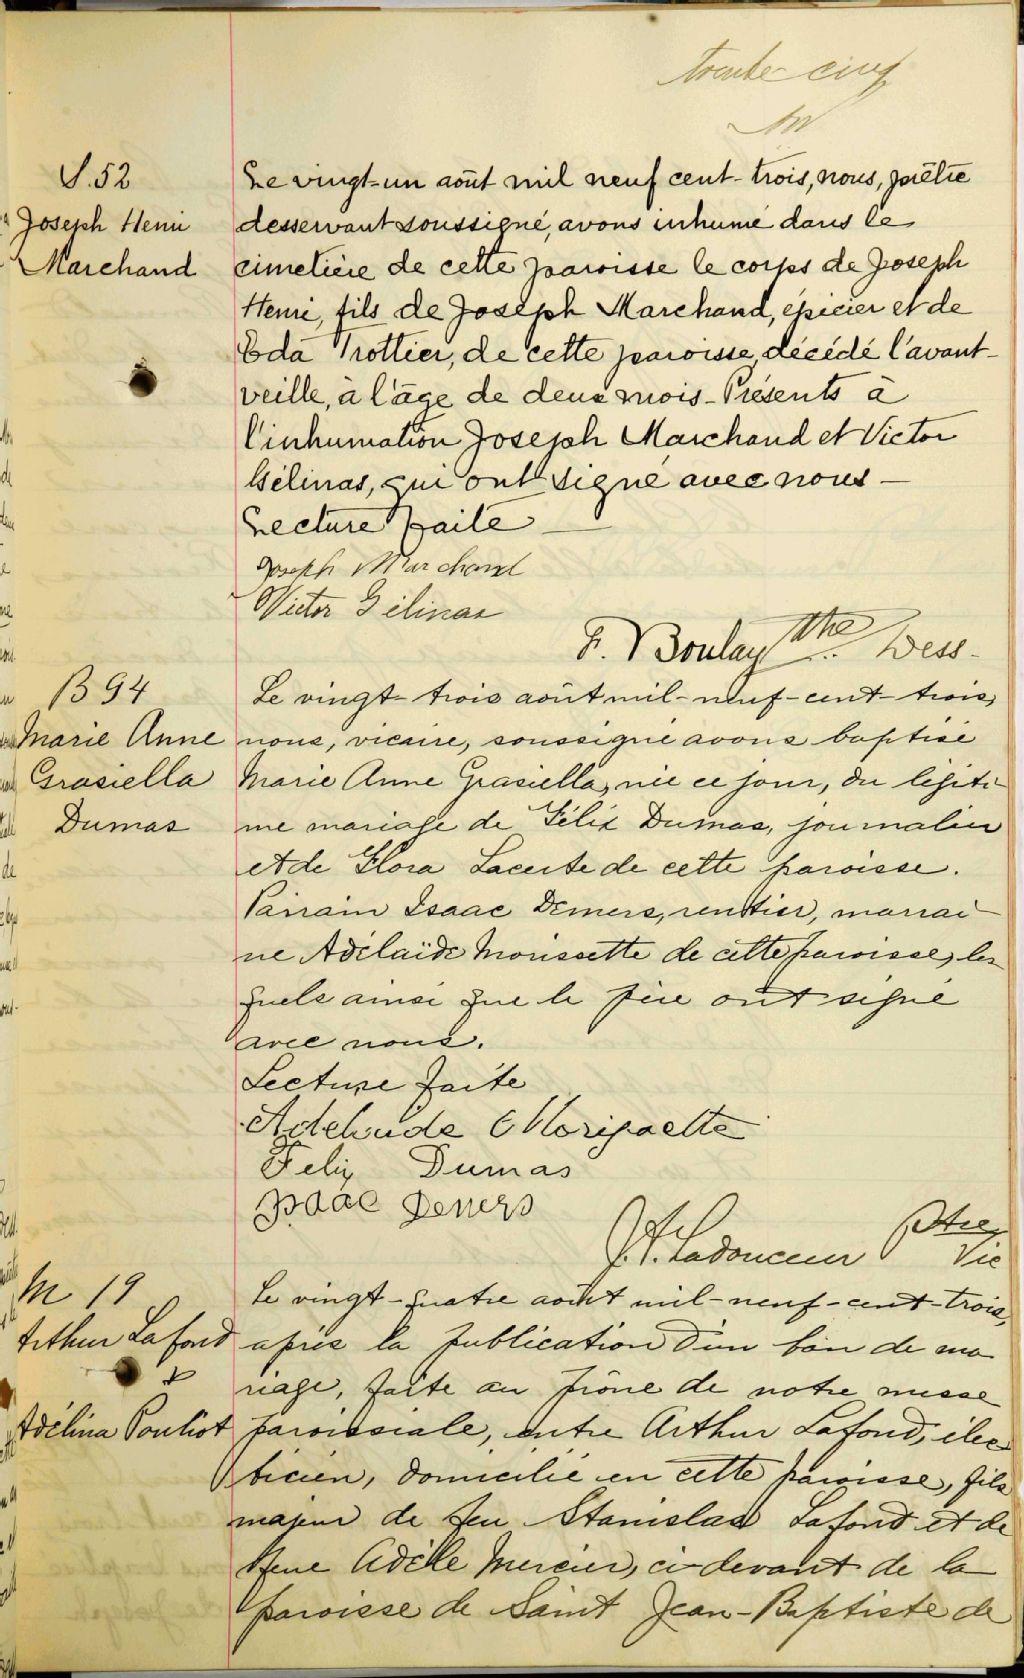 trente-cinq
S. 52
Joseph Henri
Marchand
Le vingt-un août mil neuf cent-trois, nous, prêtre
desservant soussigné, avons inhumé dans le
cimetière de cette paroisse le corps de Joseph
Henri, fils de Joseph Marchand, épicier et de
Eda Trottier, de cette paroisse, décédé l'avant-
veille, à l'âge de deux mois - Présents à
l'inhumation Joseph Marchand et Victor
Gélinas, qui ont signé avec nous —
Lecture faite —
Joseph Marchand
Victor Gélinas
F. Boulay ptre Dess.
B 94
Marie Anne
Grasiella
Dumas
Le vingt-trois août mil-neuf-cent-trois,
nous, vicaire, soussigné avons baptisé
Marie Anne Grasiella, née ce jour, du légiti-
me mariage de Félix Dumas, journalier
et de Flora Lacerte de cette paroisse.
Parrain Isaac Demers, rentier, marrai-
ne Adélaïde Morissette de cette paroisse, les
quels ainsi que le père ont signé
avec nous.
Lecture faite
Adelaide Morissette
Felix Dumas
Isaac Demers
J. A. Ladouceur Ptre
Vic
M 19
Arthur Lafond
&
Adélina Pouliot
Le vingt-quatre août mil-neuf-cent-trois,
après la publication d'un ban de ma
riage, faite au prône de notre messe
paroissiale, entre Arthur Lafond, élec-
tricien, domicilié en cette paroisse, fils
majeur de feu Stanislas Lafond et de
feue Adèle Mercier, ci-devant de la
paroisse de Saint Jean-Baptiste de